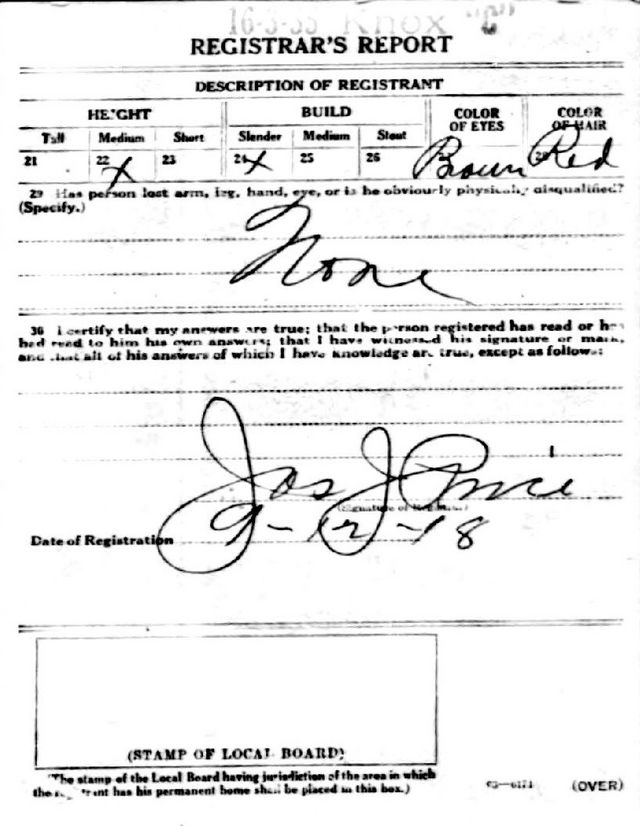 16-3-33 Knox "C"
REGISTRAR'S REPORT
DESCRIPTION OF REGISTRANT
HEIGHT BUILD COLOR OF EYES COLOR OF HAIR
Tall Medium Short Slender Medium Stout
21 22 X 23 24 X 25 26 Brown Red
29 Has person lost arm, leg, hand, eye, or is he obviously physically disqualified?
(Specify.)
None
30 I certify that my answers are true; that the person registered has read or has
had read to him his own answers; that I have witnessed his signature or mark,
and that all of his answers of which I have knowledge are true, except as follows:
Jos J Price
(Signature of Registrar)
Date of Registration 9-12-18
(STAMP OF LOCAL BOARD)
(The stamp of the Local Board having jurisdiction of the area in which
the registrant has his permanent home shall be placed in this box.)
03—6171 (OVER)